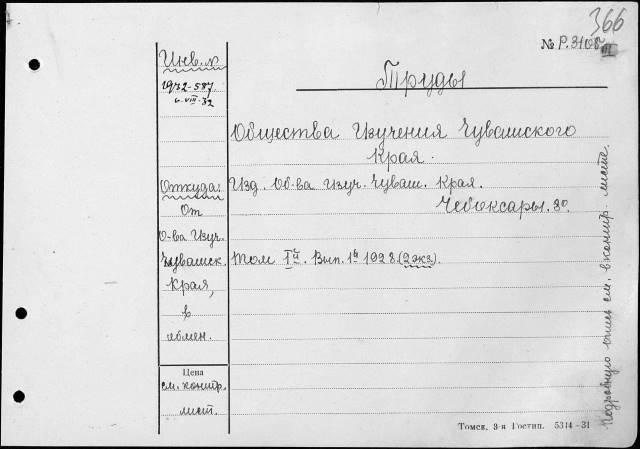 366
№ Р. 3108 III
Инв. №
1932-587
6-VIII-32
Труды
Общества Изучения Чувашского
Края.
Откуда:
От
О-ва Изуч.
Чувашск.
Края,
в
обмен.
Изд. Об-ва Изуч. Чуваш. Края.
Чебоксары. 8º.
Том Iй. Вып. 1й 1928. (2 экз).
Цена
см. контр.
лист.
Подробную опись см. в контр. листе.
Томск, 3-я Гостип. 5314-31